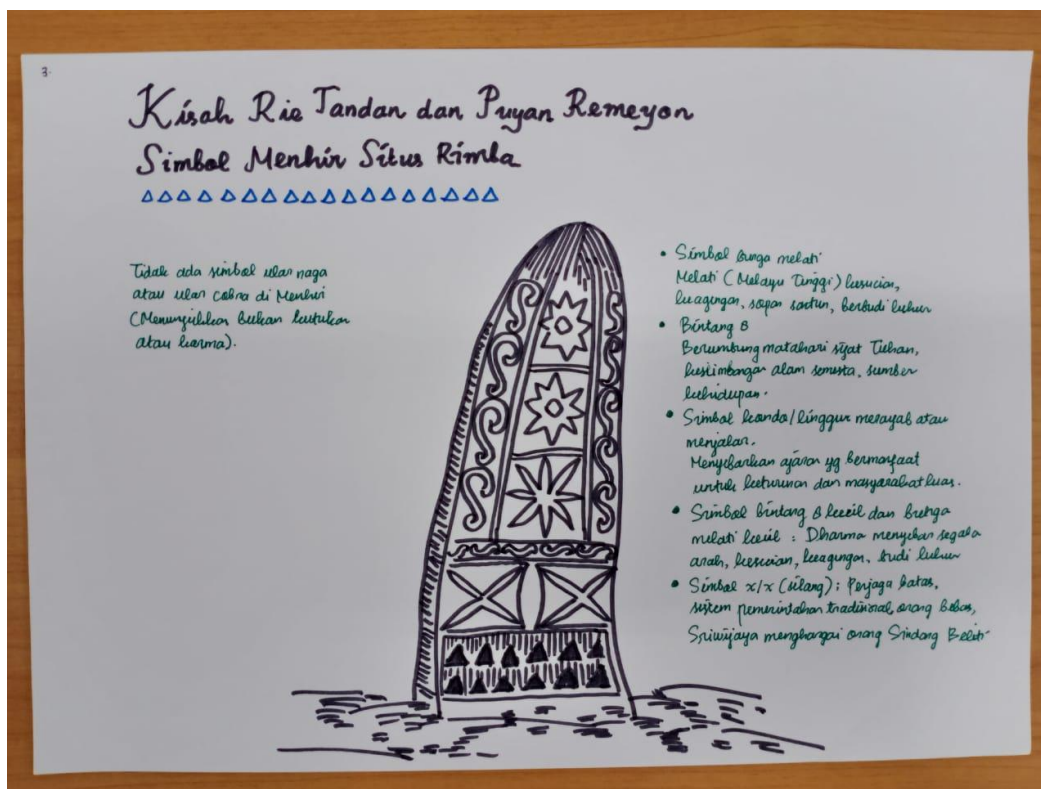 3.
Kisah Rie Tandan dan Puyan Remeyon
Simbol Menhir Situs Rimba
Tidak ada simbol ular naga
atau ular cobra di Menhir
(Menunjukkan bukan kutukan
atau karma).
• Simbol bunga melati
Melati (Melayu Tinggi) kesucian,
keagungan, sopan santun, berbudi luhur
• Bintang 8
Berumbung matahari sifat Tuhan,
keseimbangan alam semesta, sumber
kehidupan.
• Simbol kanda/linggur merayab atau
menjalar.
Menyebarkan ajaran yg bermanfaat
untuk keturunan dan masyarakat luas.
• Simbol bintang 8 kecil dan bunga
melati kecil : Dharma menyebar segala
arah, kesucian, keagungan, budi luhur
• Simbol x/x (silang) ; Penjaga batas,
sistem pemerintahan tradisional, orang bebas,
Sriwijaya menghargai orang Sindang Beliti